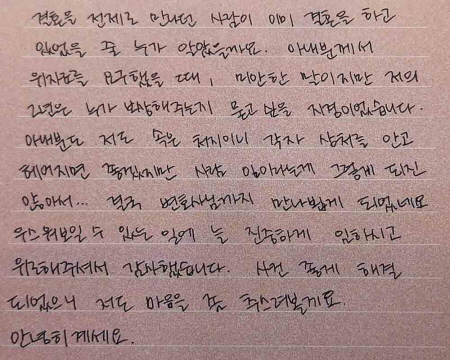 결혼을 전제로 만나던 사람이 이미 결혼을 하고
있었을 줄 누가 알았을까요. 아내분께서
위자료를 요구했을 때, 미안한 말이지만 저의
2년은 누가 보상해주는지 묻고 싶을 지경이었습니다.
아내분도 저도 속은 처지이니 각자 상처를 안고
헤어지면 좋겠지만 사람 일이라는게 그렇게 되진
않아서... 결국 변호사님까지 만나뵙게 되었네요
우스워보일 수 있는 일에 늘 진중하게 임하시고
위로해주셔서 감사했습니다. 사건 좋게 해결
되었으니 저도 마음을 좀 추스려볼게요.
안녕히 계세요.